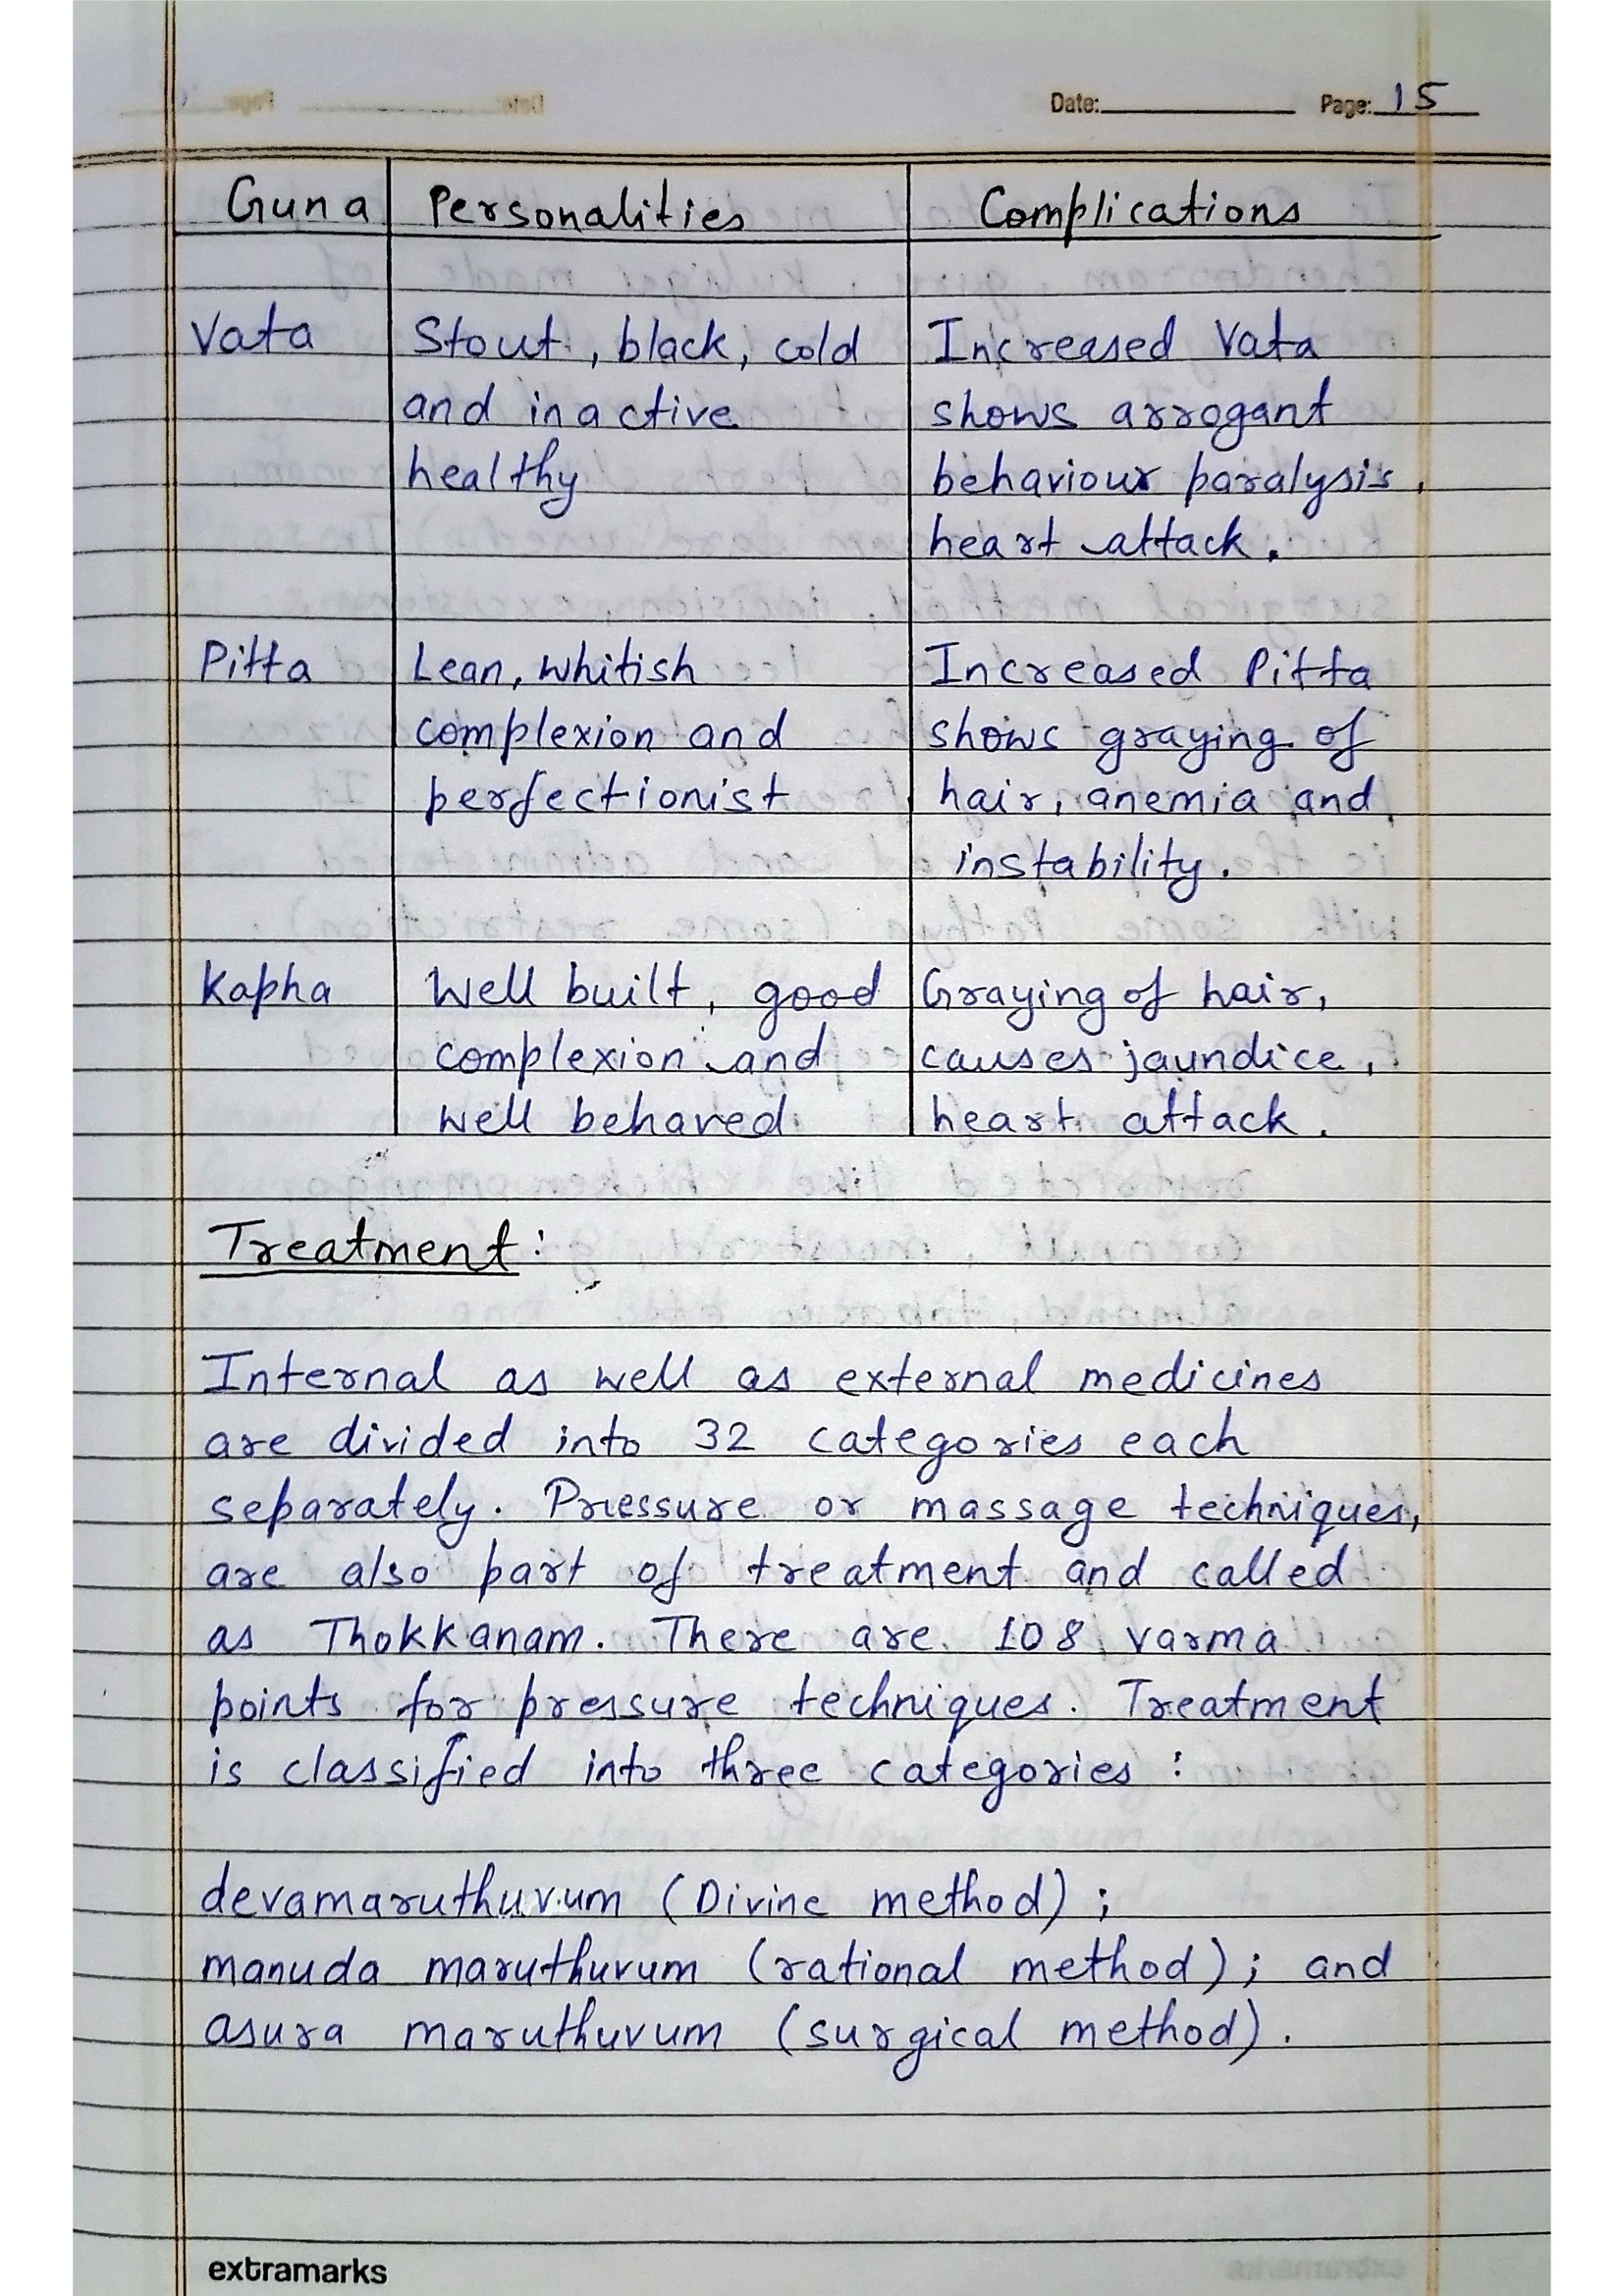 Date: Page: 15
Guna Personalities Complications
Vata Stout, black, cold Increased Vata
and inactive shows arrogant
healthy behaviour paralysis,
heart attack.
Pitta Lean, whitish Increased Pitta
complexion and shows graying of
perfectionist hair, anemia and
instability.
Kapha Well built, good Graying of hair,
complexion and causes jaundice,
well behaved heart attack.
Treatment:
Internal as well as external medicines
are divided into 32 categories each
separately. Pressure or massage techniques,
are also part of treatment and called
as Thokkanam. There are 108 varma
points for pressure techniques. Treatment
is classified into three categories:
devamaruthuvum (Divine method);
manuda maruthuvum (rational method); and
asura maruthuvum (surgical method).
extramarks